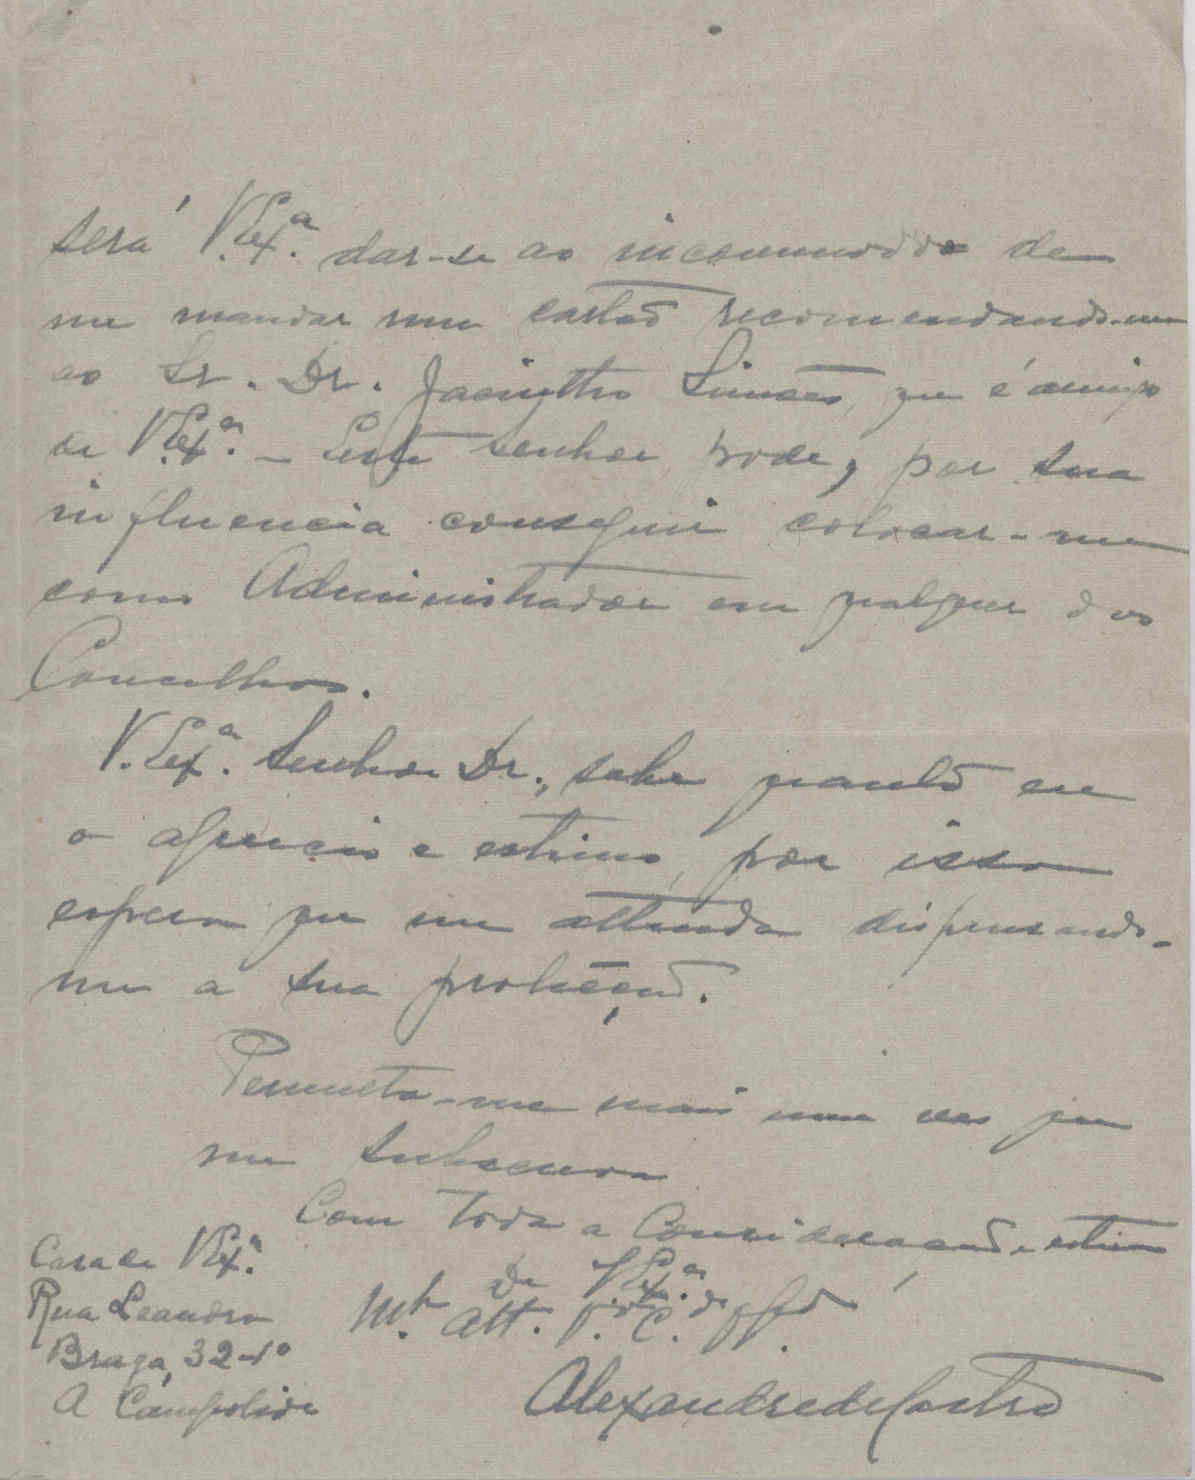 será V. Exª. dar-se ao incommodo de
me mandar um cartão recomendando-me
ao Sr. Dr. Jacintho Simões, que é amigo
de V. Exª. - Este senhor pode, por sua
influencia conseguir colocar-me
como Administrador em qualquer dos
Concelhos.
V. Exª. Senhor Dr., sabe quanto eu
o aprecio e estimo, por isso
espero que me attenda dispensando-
me a sua protecção.
Permitta-me mais uma vez que
me subscreva
Com toda a Consideração e estima
De V. Exª.
Mt. Att. V.or C.do
Casa de V. Exª.
Rua Leandro
Braga, 32-1º
A Campolide
Alexandre de Castro